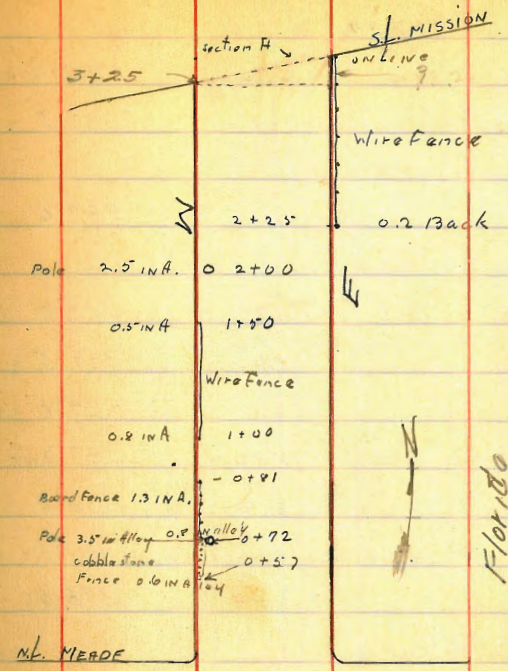 S.L. MISSION
section A
ON LINE
3+25
?
Wire Fence
W
2+25
0.2 Back
Pole 2.5 IN A. 0 2+00
E
0.5 IN A 1+50
Wire Fence
0.8 IN A 1+00
N
0+81
Board Fence 1.3 IN A.
0.8 in alley
Pole 3.5 in Alley 0+72
cobblestone 0+57
Fence 0.6 IN Alley
Florido
N.L. MEADE